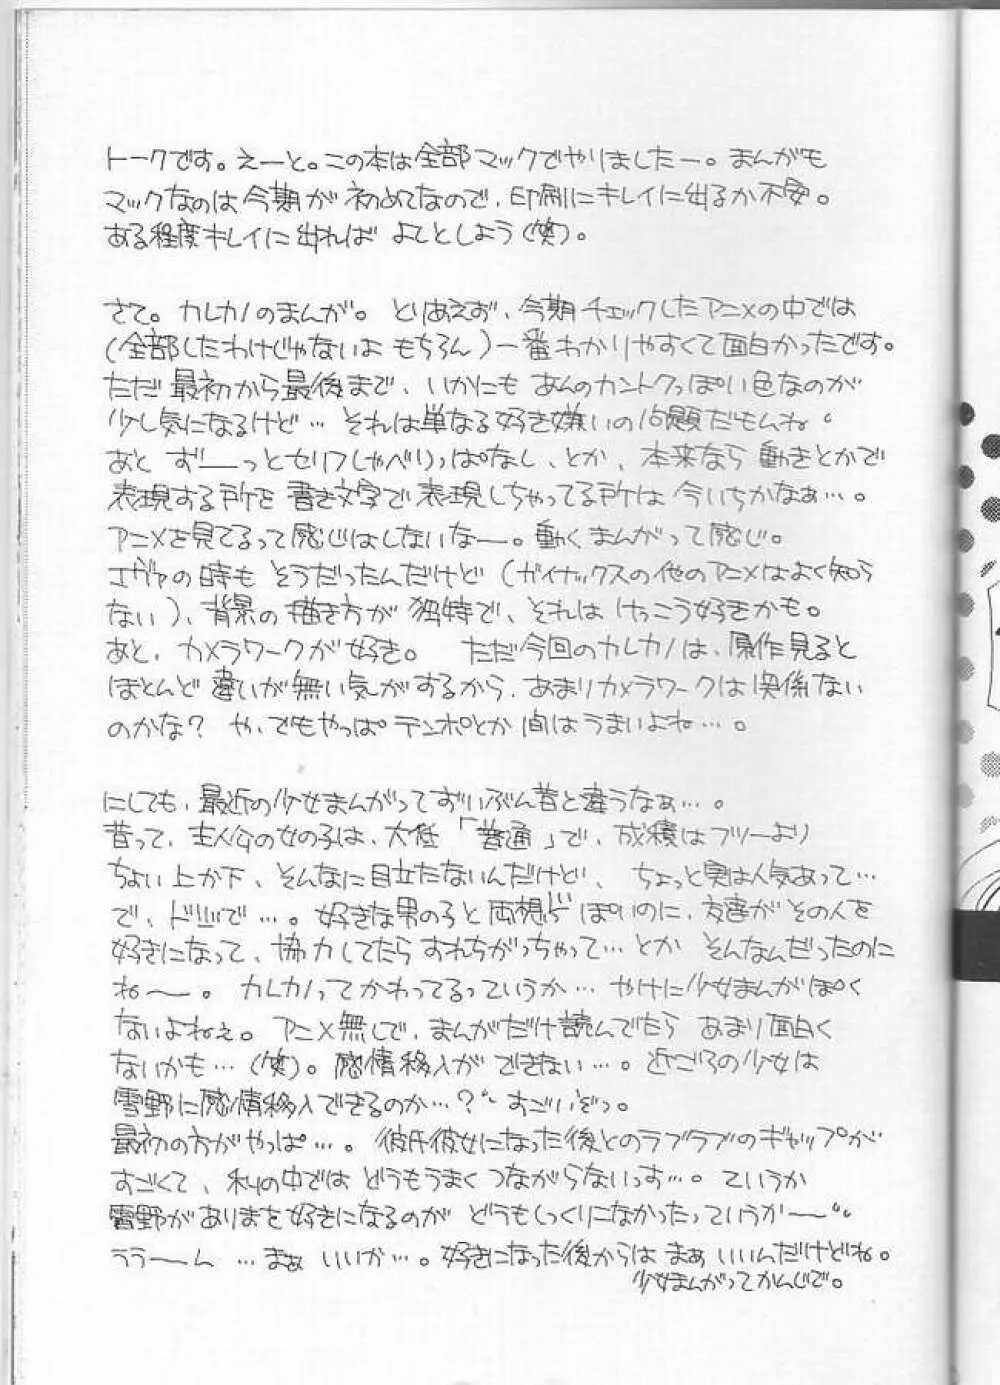 トークです。えーと。この本は全部マックでやりましたー。まんがも
マックなのは今期が初めてなので、印刷にキレイに出るか不安。
ある程度キレイに出ればよしとしよう(笑)。
さて。カレカノのまんが。とりあえず、今期チェックしたアニメの中では
(全部したわけじゃないよもちろん)一番わかりやすくて面白かったです。
ただ最初から最後まで、いかにもあんのカントクっぽい色なのが
少し気になるけど…それは単なる好き嫌いの問題だもんね。
あとずーーっとセリフしゃべりっぱなし、とか、本来なら動きとかで
表現する所を書き文字で表現しちゃってる所は今いちかなぁ…。
アニメを見てるって感じはしないなー。動くまんがって感じ。
エヴァの時もそうだったんだけど(ガイナックスの他のアニメはよく知ら
ない)、背景の描き方が独特で、それはけっこう好きかも。
あと、カメラワークが好き。ただ今回のカレカノは、原作見ると
ほとんど違いが無い気がするから、あまりカメラワークは関係ない
のかな?や、でもやっぱテンポとか間はうまいよね…。
にしても、最近の少女まんがってずいぶん昔と違うなぁ…。
昔って、主人公の女の子は、大低「普通」で、成積はフツーより
ちょい上か下、そんなに目立たないんだけど、ちょっと実は人気あって…
で、ドジで…。好きな男の子と両想いっぽいのに、友達がその人を
好きになって、協力してたらすれちがっちゃって…とかそんなんだったのに
ね〜。カレカノってかわってるっていうか…やけに少女まんがぽく
ないよねぇ。アニメ無しで、まんがだけ読んでたらあまり面白く
ないかも…(笑)。感情移入ができない…。近ごろの少女は
雪野に感情移入できるのか…?すごいぞっ。
最初の方がやっぱ…。彼氏彼女になった後とのラブラブのギャップが
すごくて、私の中ではどうもうまくつながらないっす…。ていうか
雪野がありまを好きになるのがどうもしっくりこなかったっていうか〜
ううーん…まぁいいか…。好きになった後からはまぁいいんだけどね。
少女まんがってかんじで。